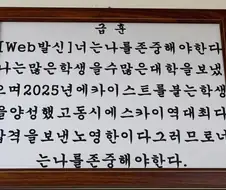 급훈
[Web발신]너는나를존중해야한다.
나는많은학생을수많은대학을보냈
으며2025년에카이스트를붙는학생
을양성했고동시에스카이역대최다
합격을보낸노영한이다그러므로너
는나를존중해야한다.